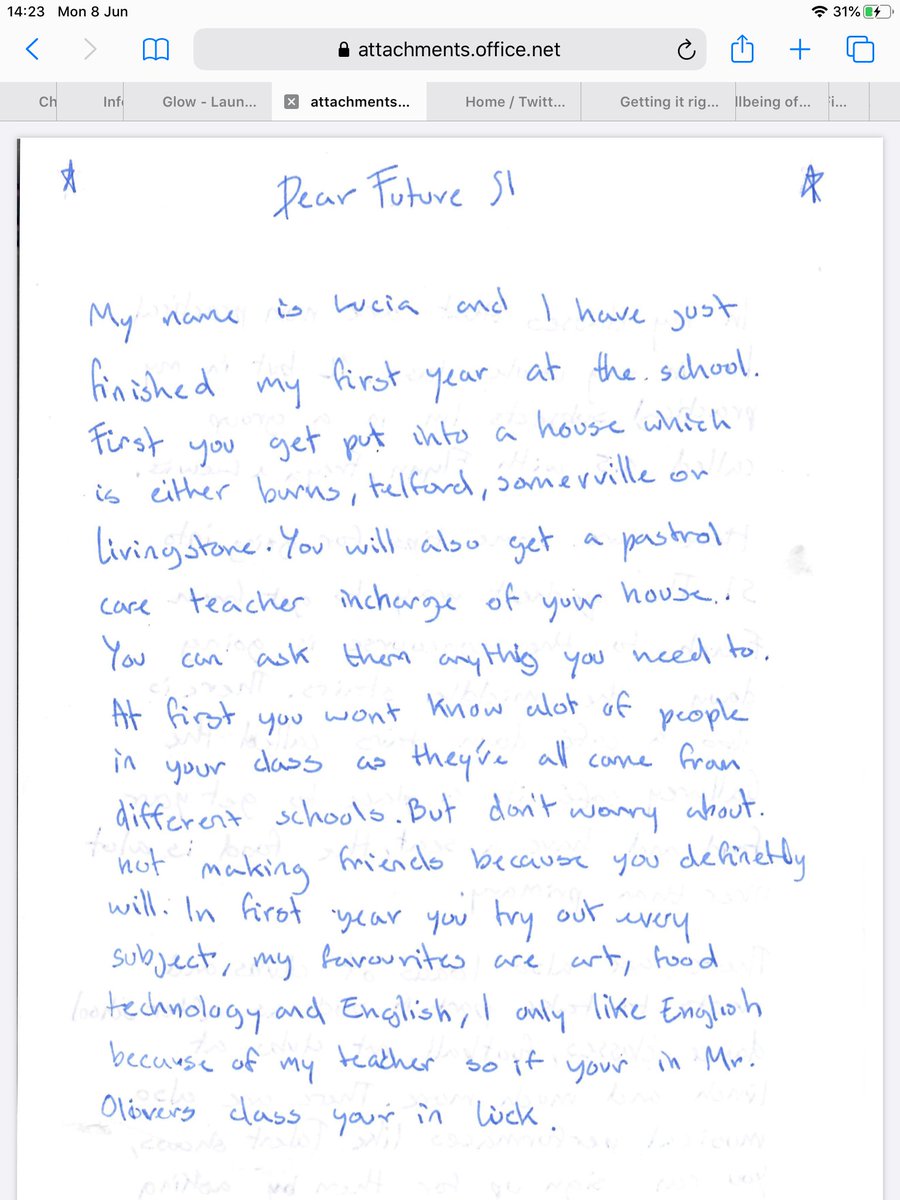 14:23 Mon 8 Jun 31%
attachments.office.net
Ch Inf Glow - Laun... attachments... Home / Twitt... Getting it rig... llbeing of... i...
Dear Future S1
My name is Lucia and I have just
finished my first year at the school.
First you get put into a house which
is either burns, telford, somerville or
Livingstone. You will also get a pastrol
care teacher incharge of your house..
You can ask them anythig you need to.
At first you wont know alot of people
in your class as they've all come from
different schools. But don't worry about.
not making friends because you definetly
will. In first year you try out every
subject, my favourites are art, food
technology and English, I only like English
because of my teather so if your in Mr.
Olivers class your in luck.